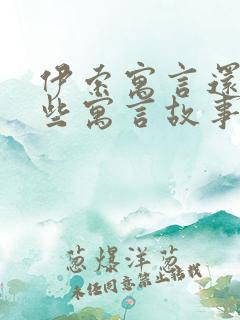 伊索寓言還
些寓言故事
葱爆洋葱
未经同意禁止转载